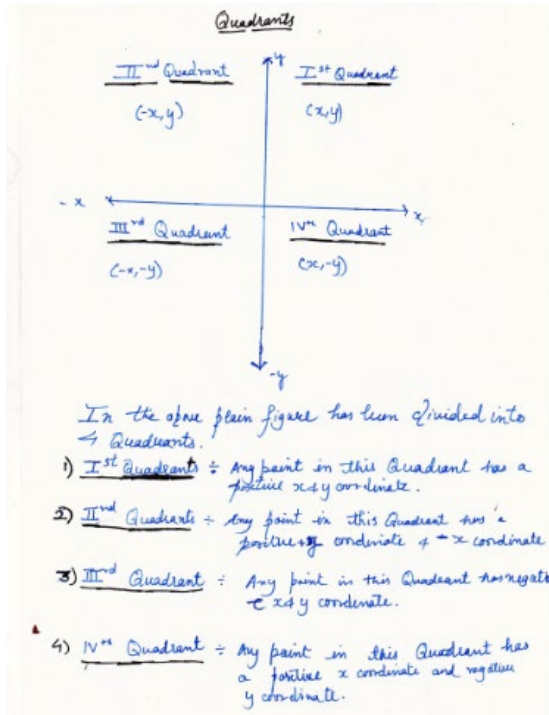 Quadrants
y
II nd Quadrant
I st Quadrant
(-x,y)
(x,y)
-x
x
III rd Quadrant
IV th Quadrant
(-x,-y)
(x,-y)
-y
In the above plain figure has been divided into
4 Quadrants.
1) I st Quadrants ÷ Any point in this Quadrant has a
positive x & y coordinate.
2) II nd Quadrants ÷ Any point in this Quadrant has a
positive y cordinate & -x coordinate
3) III rd Quadrant ÷ Any point in this Quadrant has negati
e x & y cordinate.
4) IV th Quadrant ÷ Any point in this Quadrant has
a positive x coordinate and negative
y coordinate.